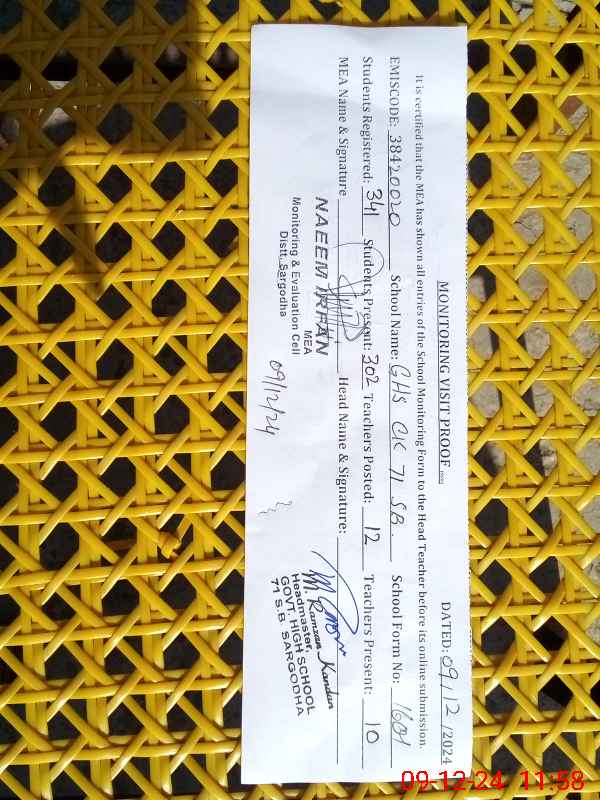 MONITORING VISIT PROOF
DATED: 09/12/2024
It is certified that the MEA has shown all entries of the School Monitoring Form to the Head Teacher before its online submission.
EMISCODE: 38420020 School Name: GHS CK 71 SB. School Form No: 1601
Students Registered: 341 Students Present: 302 Teachers Posted: 12 Teachers Present: 10
MEA Name & Signature Head Name & Signature:
NAEEM IRFAN
MEA
Monitoring & Evaluation Cell
Distt. Sargodha
09/12/24
M Ramzan Kandan
Headmaster,
GOVT. HIGH SCHOOL
71 S.B. SARGODHA
09-12-24 11:58